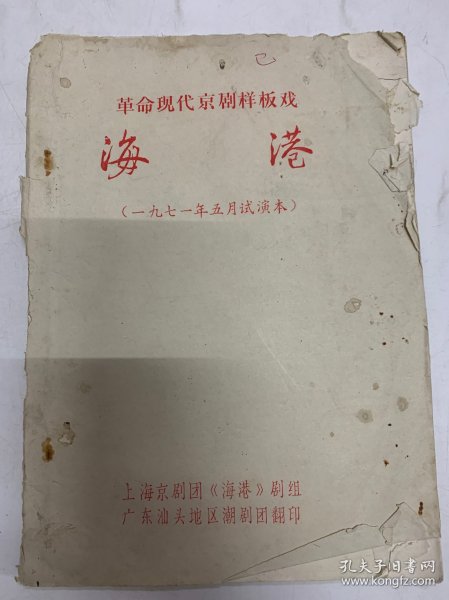 革命现代京剧样板戏
海港
(一九七一年五月试演本)
上海京剧团《海港》剧组
广东汕头地区潮剧团翻印
孔夫子旧书网
www.kongfz.com